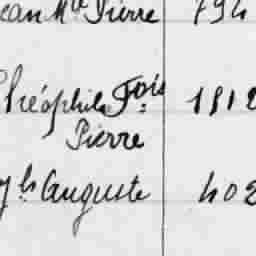 ean Mie Pierre 794
Théophile Fois 1812
Pierre
Jh Auguste 402